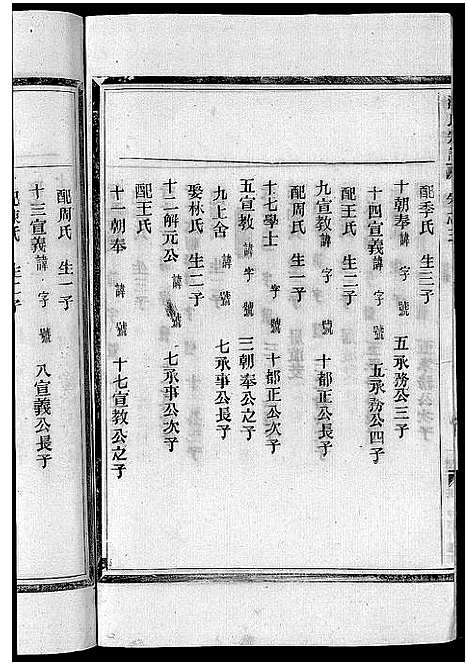 配季氏 生三子
十朝奉 諱 字 號 五承務公三子
十四宣義 諱 字 號 五承務公四子
配王氏 生二子
九宣教 諱 字 號 十都正公長子
配周氏 生一子
十七學士 諱 字 號 十都正公次子
五宣教 諱 字 號 三朝奉公之子
九上舍 諱 字 號 七承事公長子
娶林氏 生二子
十二解元公 諱 號 七承事公次子
配王氏
十一朝奉 諱 號 十七宣教公之子
配周氏 生一子
十三宣義 諱 字 號 八宣義公長子